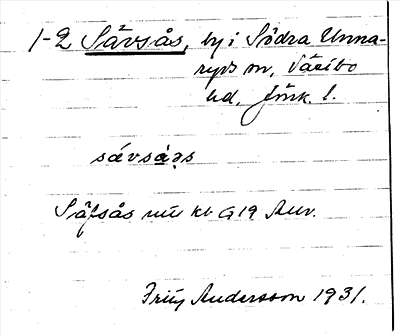 1-2 Sävsås, by i Södra Unna-
ryds sn, Västbo
hd, Jönk. l.
sávsås
Säfsås                kb G19 Anv.
Andersson 1931.